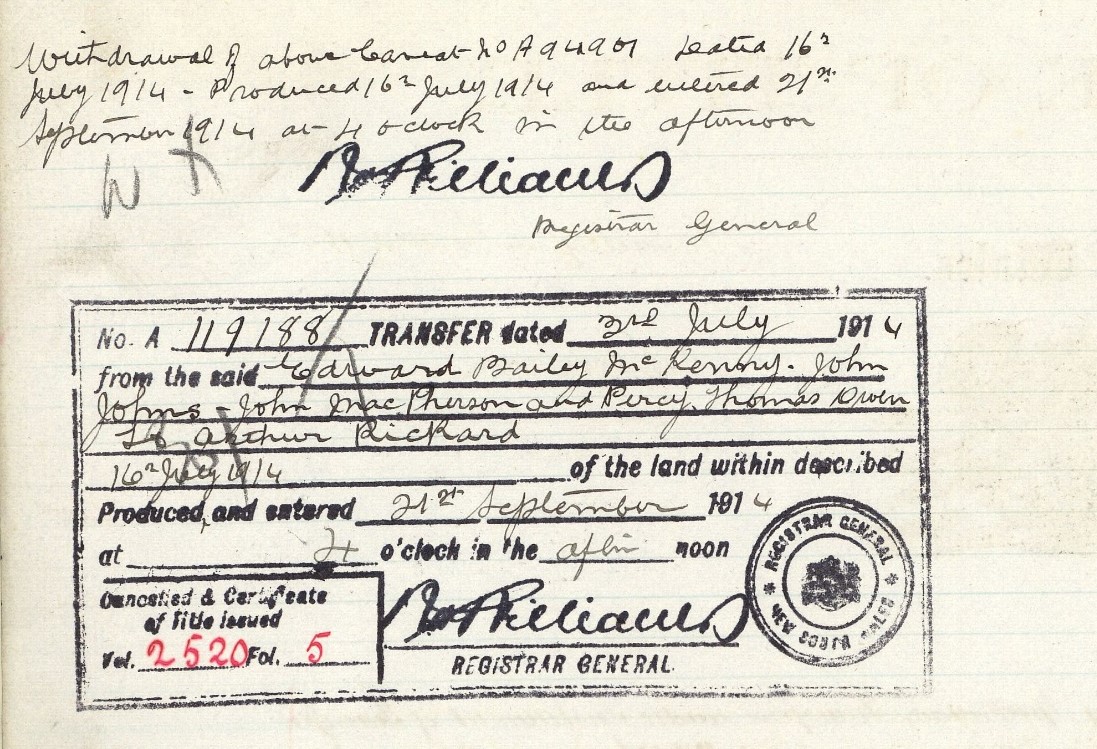 Withdrawal of above Caveat No A 94901 dated 16th
July 1914 - Produced 16th July 1914 and entered 21st
September 1914 at 4 o clock in the afternoon
Williams
Registrar General
No. A 119188 TRANSFER dated 3rd July 1914
from the said Edward Bailey McKenny. John
Johns - John MacPherson and Percy Thomas Owen
to Arthur Rickard
16th July 1914 of the land within described
Produced, and entered 21st September 1914
at 4 o'clock in the after noon
Cancelled & Certificate
of Title issued
Vol. 2520 Fol. 5
Williams
REGISTRAR GENERAL
REGISTRAR GENERAL * NEW SOUTH WALES *